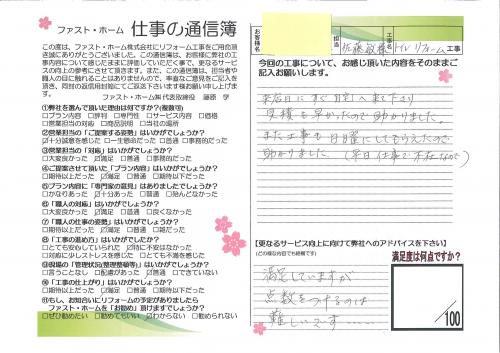 ファスト・ホーム 仕事の通信簿
この度は、ファスト・ホーム株式会社にリフォーム工事をご用命頂き
誠にありがとうございました。この通信簿は、お客様に弊社の工
事内容について感じたままに評価していただく事で、更なるサービ
スの向上の参考にさせて頂きます。また、この通信簿は、担当者や
職人の目に触れることはありませんので、率直なご意見をご記入を
頂き、同封の返信用封筒にてご返送下さいます様お願い申し上げま
す。
ファスト・ホーム㈱代表取締役 藤原 学
①弊社を選んで頂いた理由は何ですか?(複数可)
□プラン内容 □評判 □専門性 □サービス内容 □価格
□営業担当の対応 □商品説明 □当社の実績
②営業担当の「ご提案する姿勢」はいかがでしょうか?
□十分誠意を感じた □一生懸命だった □普通 □事務的だった
③営業担当の「対応」はいかがでしょうか?
□大変良かった □満足 □普通 □事務的
④ご提案させて頂いた「プラン内容」はいかがでしょうか?
□期待以上だった □満足 □普通 □期待以下だった
⑤プラン内容に「専門家の意見」はありましたでしょうか?
□かなりあった □十分あった □普通 □殆んどなかった
⑥「職人の対応」はいかがでしょうか?
□大変良かった □満足 □普通 □良くなかった
⑦「職人の仕事の姿勢」はいかがでしょうか?
□期待以上だった □満足 □普通 □雑だった
⑧「工事の進め方」はいかがでしたか?
□とても安心していられた □特に不安はなかった
□対応に少しストレスを感じた □とても不満を感じた
⑨現場の「管理状況(整理整頓等)」はいかがでしたか?
□言うことなし □配慮があった □普通 □できていない
⑩「工事の仕上がり」はいかがでしょうか?
□期待以上だった □満足 □普通 □期待以下だった
⑪もし、お知合いにリフォームの予定がありましたら
ファスト・ホームを「お勧め」頂けますでしょうか?
□ぜひ勧めたい □勧めてもいい □わからない □勧められない
お客様名
担当 佐藤敏様
工事名 トイレリフォーム工事
今回の工事について、お感じ頂いた内容をそのままご
記入お願いします。
来店日にすぐ自宅へ来て下さり
見積も早かったので助かりました。
また工事も日曜にしてもらえたので
助かりました。(平日仕事で不在なので)
【更なるサービス向上に向けて弊社へのアドバイスを下さい】
(どの様な内容でも結構です)
満足していますが
点数をつけるのは
難しいです……
満足度は何点ですか?
/100